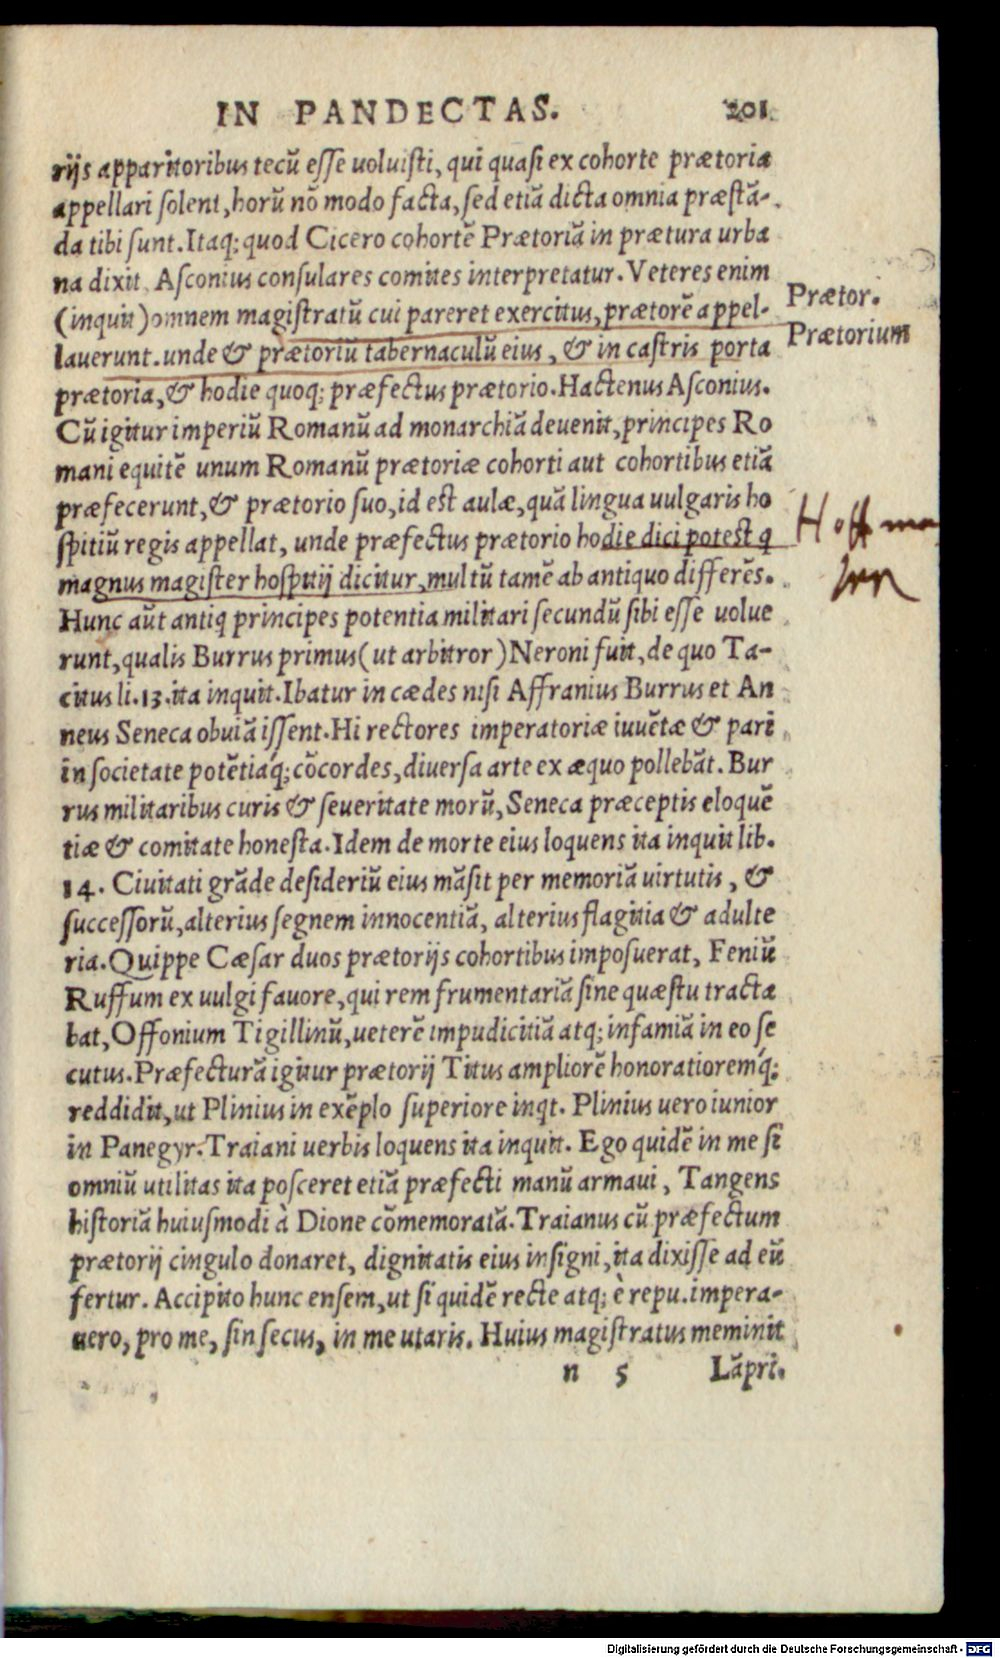 IN PANDECTAS. 201
rijs apparitoribus tecū esse uoluisti, qui quasi ex cohorte prætoria
appellari solent, horū nō modo facta, sed etiā dicta omnia præstā-
da tibi sunt. Itaq; quod Cicero cohortē Prætoriā in prætura urba
na dixit, Asconius consulares comites interpretatur. Veteres enim
(inquit) omnem magistratū cui pareret exercitus, prætorē appel-
Prætor.
lauerunt. unde & prætoriū tabernaculū eius, & in castris porta
Prætorium
prætoria, & hodie quoq; præfectus prætorio. Hactenus Asconius.
Cū igitur imperiū Romanū ad monarchiā deuenit, principes Ro
mani equitē unum Romanū prætoriæ cohorti aut cohortibus etiā
præfecerunt, & prætorio suo, id est aulæ, quā lingua uulgaris ho
spitiū regis appellat, unde præfectus prætorio hodie dici potest q
Hoffma
magnus magister hospitij dicitur, multū tamē ab antiquo differēs.
Hunc aūt antiq principes potentia militari secundū sibi esse uolue
runt, qualis Burrus primus (ut arbitror) Neroni fuit, de quo Ta-
citus li. 13. ita inquit. Ibatur in cædes nisi Affranius Burrus et An
neus Seneca obuiā issent. Hi rectores imperatoriæ iuuētæ & pari
in societate potētiaq́; cōcordes, diuersa arte ex æquo pollebāt. Bur
rus militaribus curis & seueritate morū, Seneca præceptis eloquē
tiæ & comitate honesta. Idem de morte eius loquens ita inquit lib.
14. Ciuitati grāde desideriū eius māsit per memoriā uirtutis, &
successorū, alterius segnem innocentiā, alterius flagitia & adulte
ria. Quippe Cæsar duos prætorijs cohortibus imposuerat, Feniū
Ruffum ex uulgi fauore, qui rem frumentariā sine quæstu tracta
bat, Offonium Tigillinū, ueterē impudicitiā atq; infamiā in eo se
cutus. Præfecturā igitur prætorij Titus ampliorē honoratioremq́;
reddidit, ut Plinius in exēplo superiore inqt. Plinius uero iunior
in Panegyr. Traiani uerbis loquens ita inquit. Ego quidē in me si
omniū utilitas ita posceret etiā præfecti manū armaui, Tangens
historiā huiusmodi à Dione cōmemoratā. Traianus cū præfectum
prætorij cingulo donaret, dignitatis eius insigni, ita dixisse ad eū
fertur. Accipito hunc ensem, ut si quidē recte atq; è repu. impera-
uero, pro me, sin secus, in me utaris. Huius magistratus meminit
n 5 Lāpri.
Digitalisierung gefördert durch die Deutsche Forschungsgemeinschaft - DFG